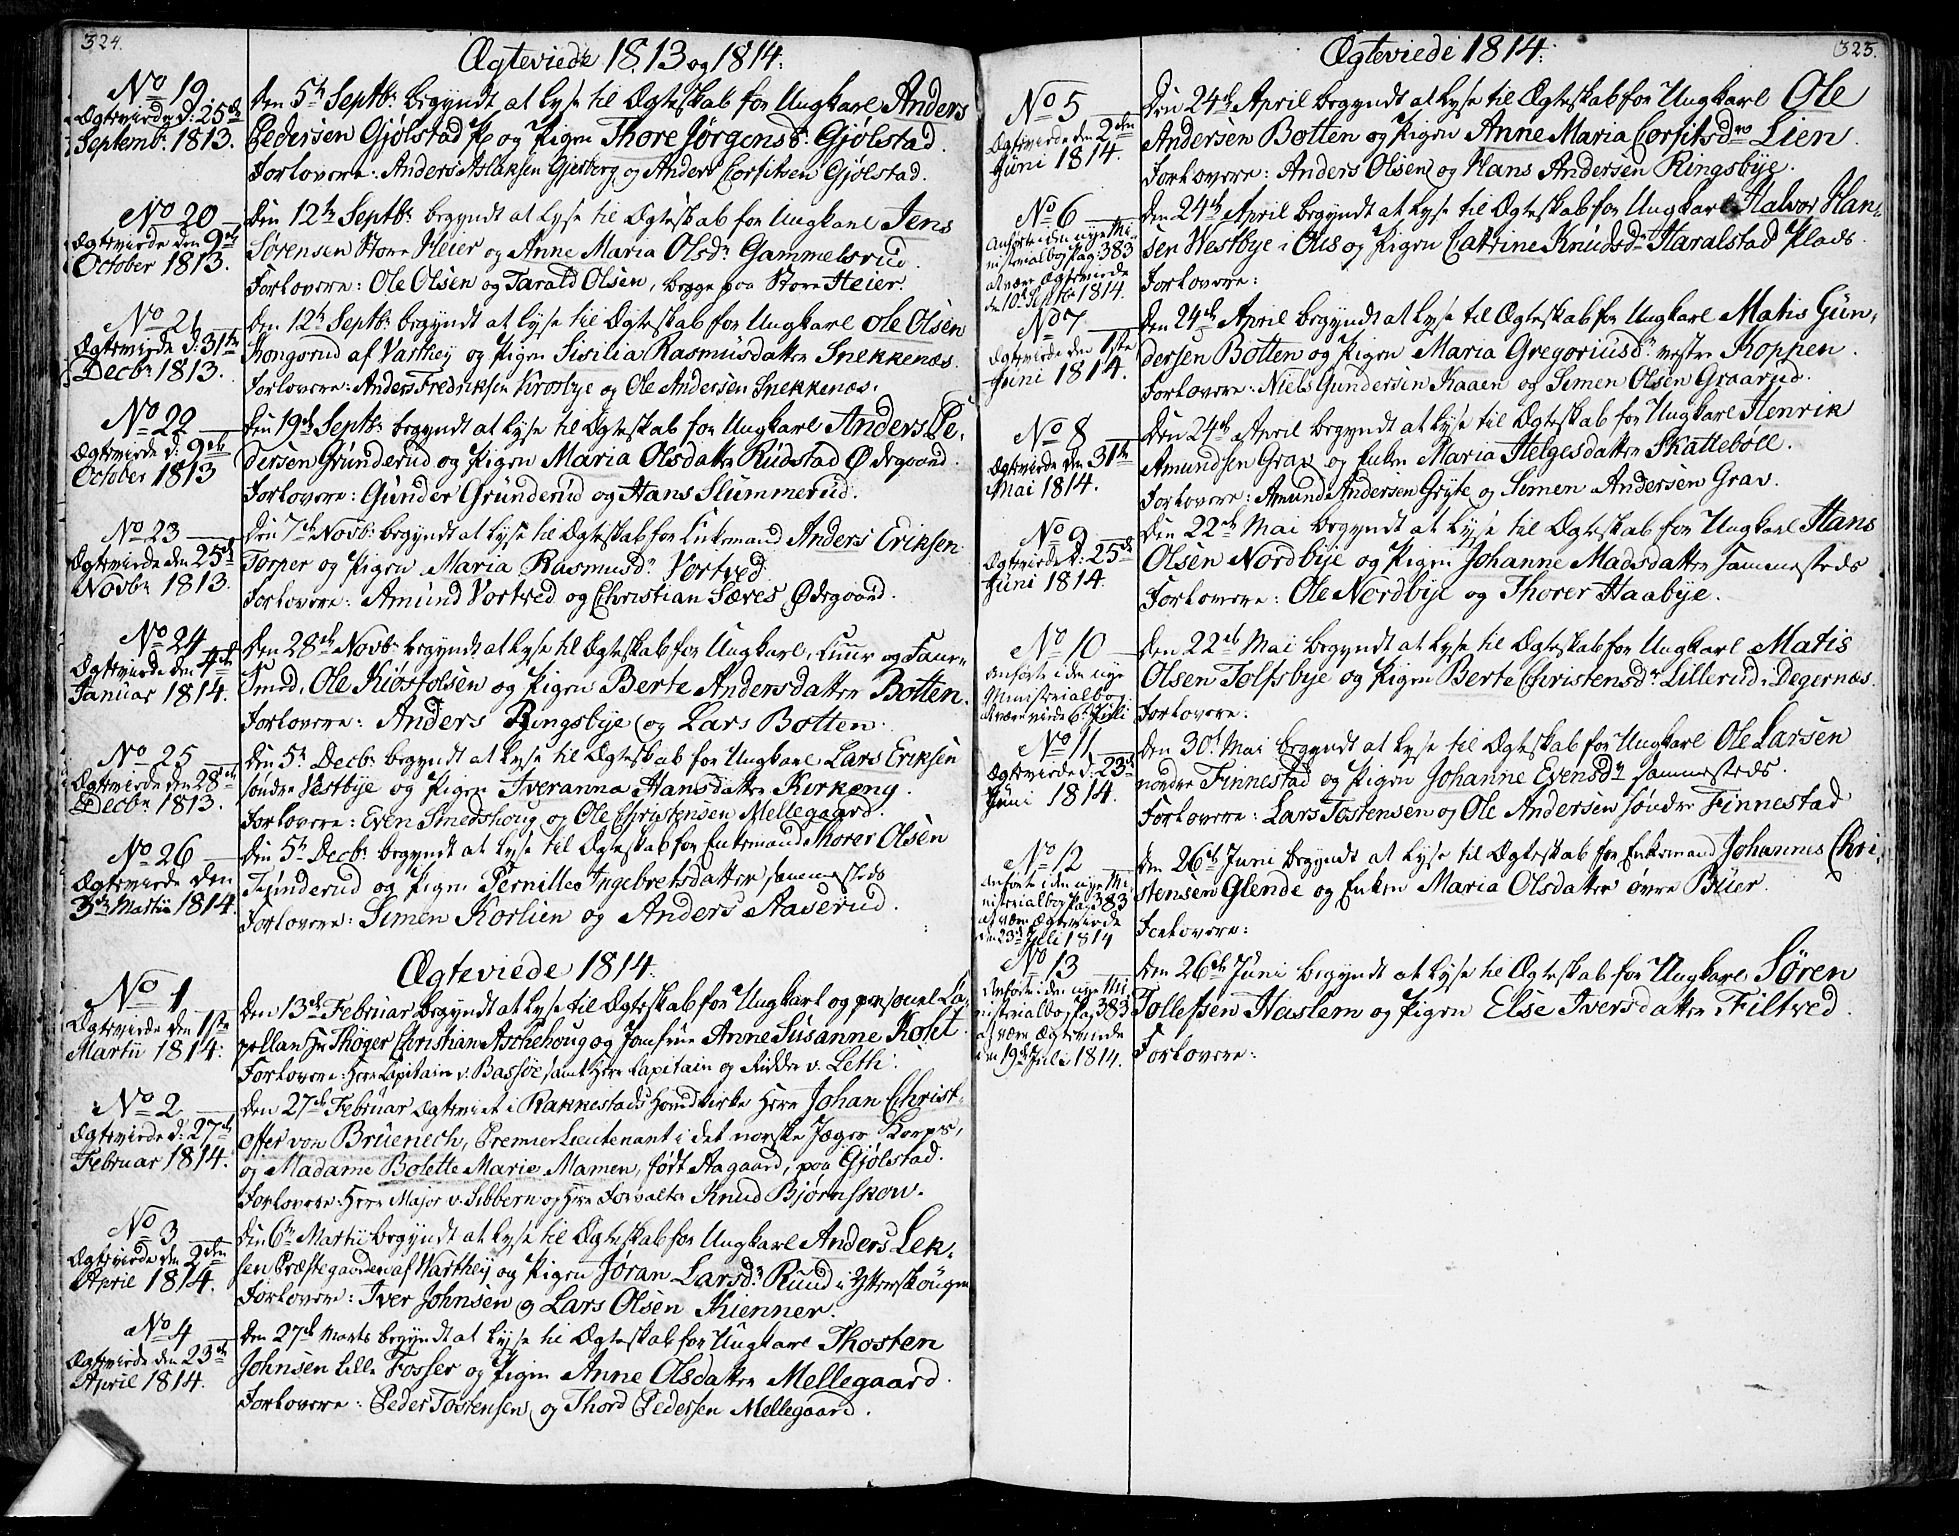 324.
Ægteviede 1813 og 1814.
No 19.
Ægteviede d: 25de
Septembr 1813.
Den 5te Septbr begyndt at lyse til Ægteskab for Ungkarl Anders
Pedersen Gjølstad og Pigen Thore Jørgensdr Gjølstad.
Forlovere: Anders Aslaksen Gjesberg og Anders Corfitsen Gjølstad.
No 20
Ægteviede den 9de
October 1813.
Den 12te Septbr begyndt at lyse til Ægteskab for Ungkarl Jens
Sørensen Store Heier og Anne Maria Olsdr Gammelsrud.
Forlovere: Ole Olsen og Tarald Olsen, begge paa Store Heier.
No 21
Ægteviede d: 31te
Decbr 1813.
Den 12te Septbr begyndt at lyse til Ægteskab for Ungkarl Ole Olsen
Kongsrud af Varthey og Pigen Sisilia Rasmusdatter Snekkenæs.
Forlovere: Anders Fredriksen Krosbye og Ole Andersen Snekkenæs.
No 22
Ægteviede d: 9de
October 1813
Den 19de Septbr begyndt at lyse til Ægteskab for Ungkarl Anders Pe-
dersen Grunderud og Pigen Maria Olsdatter Rudstad Ødegaard.
Forlovere: Gunder Grunderud og Hans Slummerud.
No 23
Ægteviede den 25de
Novbr 1813.
Den 7de Novbr begyndt at lyse til Ægteskab for Enkemand Anders Eriksen
Torper og Pigen Maria Rasmusdr Vortved.
Forlovere: Amund Vortved og Christian Sæves Ødegaard.
No 24
Ægteviede den 4de
Januar 1814.
Den 28de Novbr begyndt at lyse til Ægteskab for Ungkarl, og
Smed, Ole Kiøstolsen og Pigen Berte Andersdatter Botten.
Forlovere: Anders Ringsbye og Lars Botten.
No 25
Ægteviede den 28de
Decbr 1813.
Den 5te Decbr begyndt at lyse til Ægteskab for Ungkarl Lars Eriksen
søndre Vestbye og Pigen Iveranna Hansdatter Kirkeng.
Forlovere: Even Smedshoug og Ole Christensen Mellegaard.
No 26
Ægteviede den
3de Martii 1814.
Den 5te Decbr begyndt at lyse til Ægteskab for Enkemand Thorer Olsen
Tjunderud og Pigen Pernille Ingebretsdatter sammesteds
Forlovere: Simen Korlien og Anders Aaserud.
Ægteviede 1814.
No 1
Ægteviede den 1ste
Martii 1814.
Den 13de Februar begyndt at lyse til Ægteskab for Ungkarl og personel Ca-
pellan Hr Thøger Christian Aschehoug og Jomfrue Anne Susanne Kohl.
Forlovere: Herr Capitain v. Bassøe, samt Herr Capitain og Ridder v. Leth.
No 2
Ægteviede d: 27de
Februar 1814.
Den 27de Februar Ægteviet i Rakkestads Hovedkirke Herr Johan Christ-
offer von Brüenech, Premier Lieutenant i det norske Jæger Korps,
og Madame Bolette Marie Mamen, født Aagaard, paa Gjølstad.
Forlovere: Herr Major v. Sibbern og Herr Forvalter Knud Bjørnskow.
No 3
Ægteviede den 2den
April 1814.
Den 6te Martii begyndt at lyse til Ægteskab for Ungkarl Anders Lek-
sen Præstegaarden af Varthey og Pigen Jøran Larsdr Ruud i Ytterskougen
Forlovere: Iver Johnsen og Lars Olsen Kienner.
No 4
Ægteviede den 23de
April 1814.
Den 27de Marts begyndt at lyse til Ægteskab for Ungkarl Thosten
Johnsen Lille Fosser og Pigen Anne Olsdatter Mellegaard.
Forlovere: Peder Tostensen og Thord Pedersen Mellegaard.
325.
Ægteviede 1814.
No 5
Ægteviede den 2den
Juni 1814.
Den 24de April begyndt at lyse til Ægteskab for Ungkarl Ole
Andersen Botten og Pigen Anne Maria Corfitsdr Lien.
Forlovere: Anders Olsen og Hans Andersen Ringsbye.
No 6
Anført i den nye Mi-
nisterialbog Pag: 383
at være Ægteviede
den 10de Septbr 1814.
Den 24de April begyndt at lyse til Ægteskab for Ungkarl Halvor Han-
sen Westbye i Ous og Pigen Catrine Knudsdr Haralstad Plads.
Forlovere:
No 7
Ægteviede den 1ste
Juni 1814.
Den 24de April begyndt at lyse til Ægteskab for Ungkarl Matis Gun-
dersen Botten og Pigen Maria Gregoriusdr vestre Koppen.
Forlovere: Niels Gundersen Kaaen og Simen Olsen Graarud.
No 8
Ægteviede den 31te
Mai 1814.
Den 24de April begyndt at lyse til Ægteskab for Ungkarl Henrik
Amundsen Grav og Enken Maria Helgesdatter Skattebøll.
Forlovere: Amund Andersen Gryte og Simen Andersen Grav.
No 9
Ægteviede d: 25de
Juni 1814.
Den 22de Mai begyndt at lyse til Ægteskab for Ungkarl Hans
Olsen Nordbye og Pigen Johanne Madsdatter sammesteds
Forlovere: Ole Nordbye og Thorer Haabye.
No 10
Anført i den nye
Ministerialbog
at være viede 6te Juli
Den 22de Mai begyndt at lyse til Ægteskab for Ungkarl Matis
Olsen Tolfsbye og Pigen Berte Christensdr Lillerud i Degernæs.
Forlovere:
No 11
Ægteviede d: 23de
Juni 1814.
Den 30te Mai begyndt at lyse til Ægteskab for Ungkarl Ole Larsen
nordre Finnestad og Pigen Johanne Evensdr sammesteds.
Forlovere: Lars Tostensen og Ole Andersen søndre Finnestad
No 12
Anført i den nye Mi-
nisterialbog Pag 383
at være Ægteviede
den 23de Juli 1814
Den 26de Juni begyndt at lyse til Ægteskab for Enkemand Johannes Chri-
stensen Glende og Enken Maria Olsdatter øvre Buer.
Forlovere:
No 13
Anført i den nye Mi-
nisterialbog Pag 383
at være Ægteviede
den 19de Juli 1814.
Den 26de Juni begyndt at lyse til Ægteskab for Ungkarl Søren
Tollefsen Haslem og Pigen Else Iversdatter Filtved.
Forlovere: